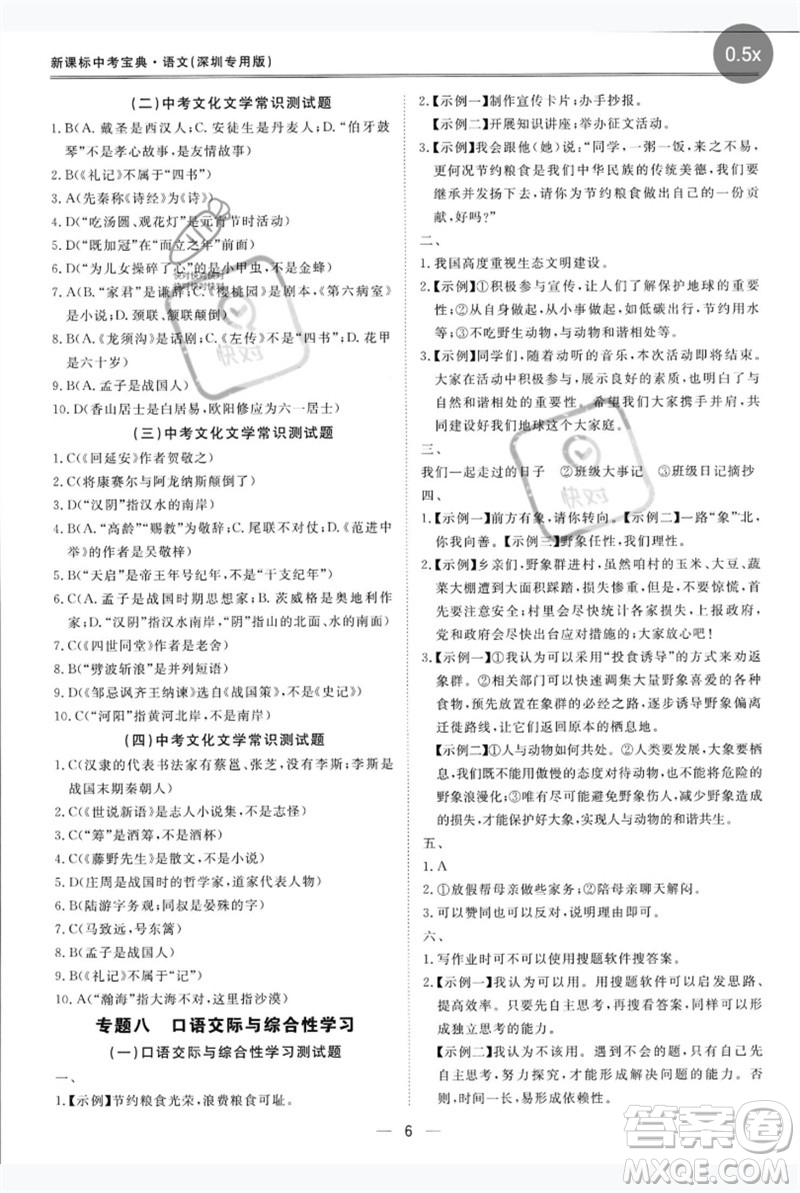 新课标中考宝典·语文(深圳专用版)
0.5x
(二)中考文化文学常识测试题
1. B(A. 戴圣是西汉人;C. 安徒生是丹麦人;D.“伯牙鼓
琴”不是孝心故事,是友情故事)
2. B(《礼记》不属于“四书”)
3. A(先秦称《诗经》为《诗》)
4. D(“吃汤圆、观花灯”是元宵节时活动)
5. D(“既加冠”在“而立之年”前面)
6. D(“为儿女操碎了心”的是小甲虫,不是金蜂)
7. A(B.“家君”是谦辞;C.《樱桃园》是剧本,《第六病室》是
小说;D. 颈联、颔联颠倒)
8. A(B.《龙须沟》是话剧;C.《左传》不是“四书”;D. 花甲
是六十岁)
9. B(A. 孟子是战国人)
10. D(香山居士是白居易,欧阳修应为六一居士)
(三)中考文化文学常识测试题
1. C(《回延安》作者贺敬之)
2. C(将康赛尔与阿龙纳斯颠倒了)
3. D(“汉阴”指汉水的南岸)
4. B(A.“高龄”“赐教”为敬辞;C. 尾联不对仗;D.《范进中
举》的作者是吴敬梓)
5. B(“天启”是帝王年号纪年,不是“干支纪年”)
6. C(A. 孟子是战国时期思想家;B. 茨威格是奥地利作
家;D.“汉阴”指汉水南岸,“阴”指山的北面或水的南岸)
7. C(《四世同堂》作者是老舍)
8. B(“劈波斩浪”是并列短语)
9. D(《邹忌讽齐王纳谏》选自《战国策》,不是《史记》)
10. C(“河阳”指黄河北岸,不是南岸)
(四)中考文化文学常识测试题
1. C(汉隶的代表书法家有蔡邕、张芝,没有李斯;李斯是
战国末期秦朝人)
2. C(《世说新语》是志人小说,不是志怪)
3. C(“筹”是酒筹,不是酒杯)
4. C(《藤野先生》是散文,不是小说)
5. D(庄周是战国时的道家学派人物)
6. B(陆游字务观;同叔是晏殊的字)
7. C(A. 司马迁没有“字”)
8. B(孟子是战国人)
9. B(《礼记》不属于“记”)
10. A(“瀚海”指大海不对,这里指沙漠)
专题八 口语交际与综合性学习
(一)口语交际与综合性学习测试题
一、
1.【示例】节约粮食光荣,浪费粮食可耻。
2.【示例一】制作宣传卡片;办手抄报。
【示例二】开展知识讲座;举办征文活动。
3.【示例】我会跟他(她)说:“同学,一粥一饭,来之不易,
更何况节约粮食是我们中华民族的传统美德,我们要
继承并发扬下去,请您为节约粮食做出自己的一份贡
献,好吗?”
二、
1. 我国高度重视生态文明建设。
2.【示例】①积极参与宣传,让人们了解保护地球的重要
性。②从自身做起,从小事做起,节约用水、节约粮食
等。③不吃野生动物,与动物和谐相处。
3.【示例】同学们,随着涌动的音乐,本次活动即将结束。
大家在活动中积极参与,展示出良好的素质,也感悟到了与
自然和谐相处的重要性。希望我们大家携手并肩,共
同建设好我们地球这个大家庭。
三、
我们一起走过的日子 ②班级大事记 ③班级日记摘抄
四、
1.【示例一】前方有象,请你转向。【示例二】一路“象”
北,小心应对。【示例三】野象任性,我们理性。
2.【示例】乡亲们,野象群进村,虽然咱村的玉米、大豆、蔬
菜大棚遭到大面积踩踏,损失惨重,但一定不要去激怒
野象,以免造成人身伤害;村里会尽快统计各家损失,上报政府,
党和政府会尽快出台应对措施的;大家放心吧!
3.【示例一】①我认为可以采用“投食诱导”的方式来劝返
象群。②相关部门可以快速调集大量野象喜爱的食
物,并投放于象群的必经之路,以诱导野象群逐步偏离
迁徙路线,让它们回到原本的栖息地。
【示例二】①人与动物如何共处,需要发展,大象要
生存,我们不能用傲慢的态度对待动物,也不能将危险的
野象浪漫化;③唯有尽可能多了解野象,减少野象造成
的损失,才能保护好大象,实现人与动物的和谐共生。
五、
1. A
2. ①放假帮母亲做些家务;②陪母亲聊天解闷。
3. 可以赞同也可以反对,说明理由即可。
六、
1. 写作业时可不可以用搜题软件搜答案。
2.【示例一】我认为可以用。用搜题软件可以启发思路、
提高效率。只要先自主思考,再进行搜题,也可以形
成独立思考的能力。
【示例二】我认为不可以用。遇到不会的题,不可以
用,否则会产生依赖心理。只有先自主思考,才可以形
成自主学习的能力。
6
快对
答案圈
MXQE.COM